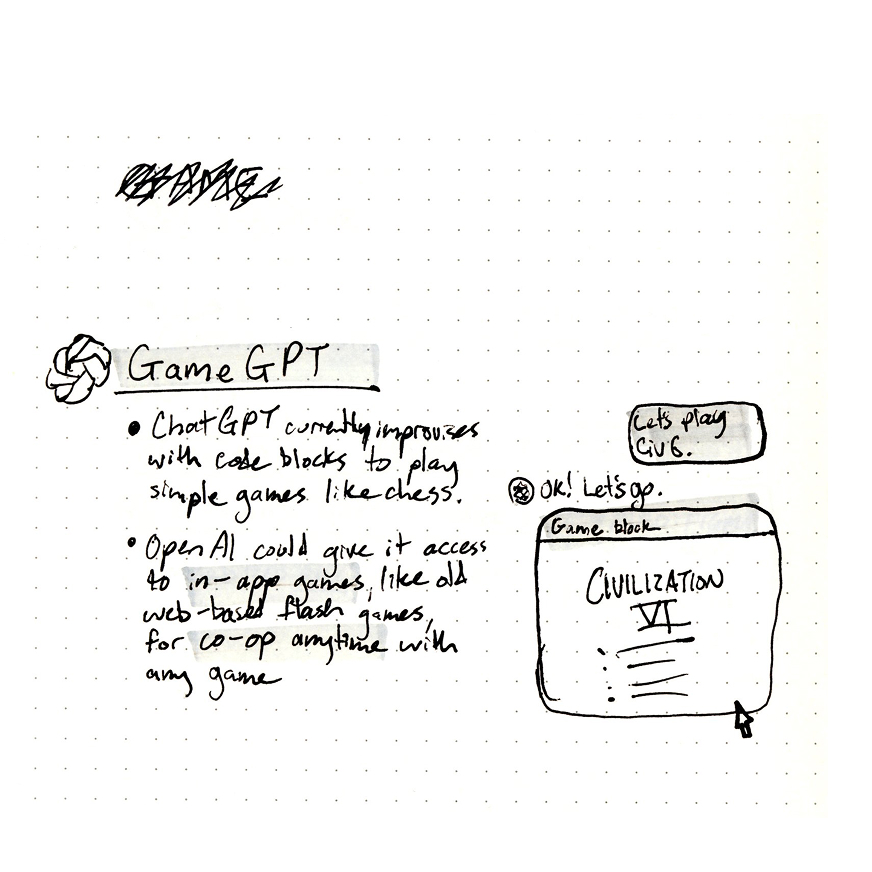 Game GPT
• ChatGPT currently improvises
with code blocks to play
simple games like chess.
• OpenAI could give it access
to in-app games, like old
web-based flash games,
for co-op anytime with
any game
Let's play
Civ 6.
OK! Let's go.
Game block
CIVILIZATION
VI